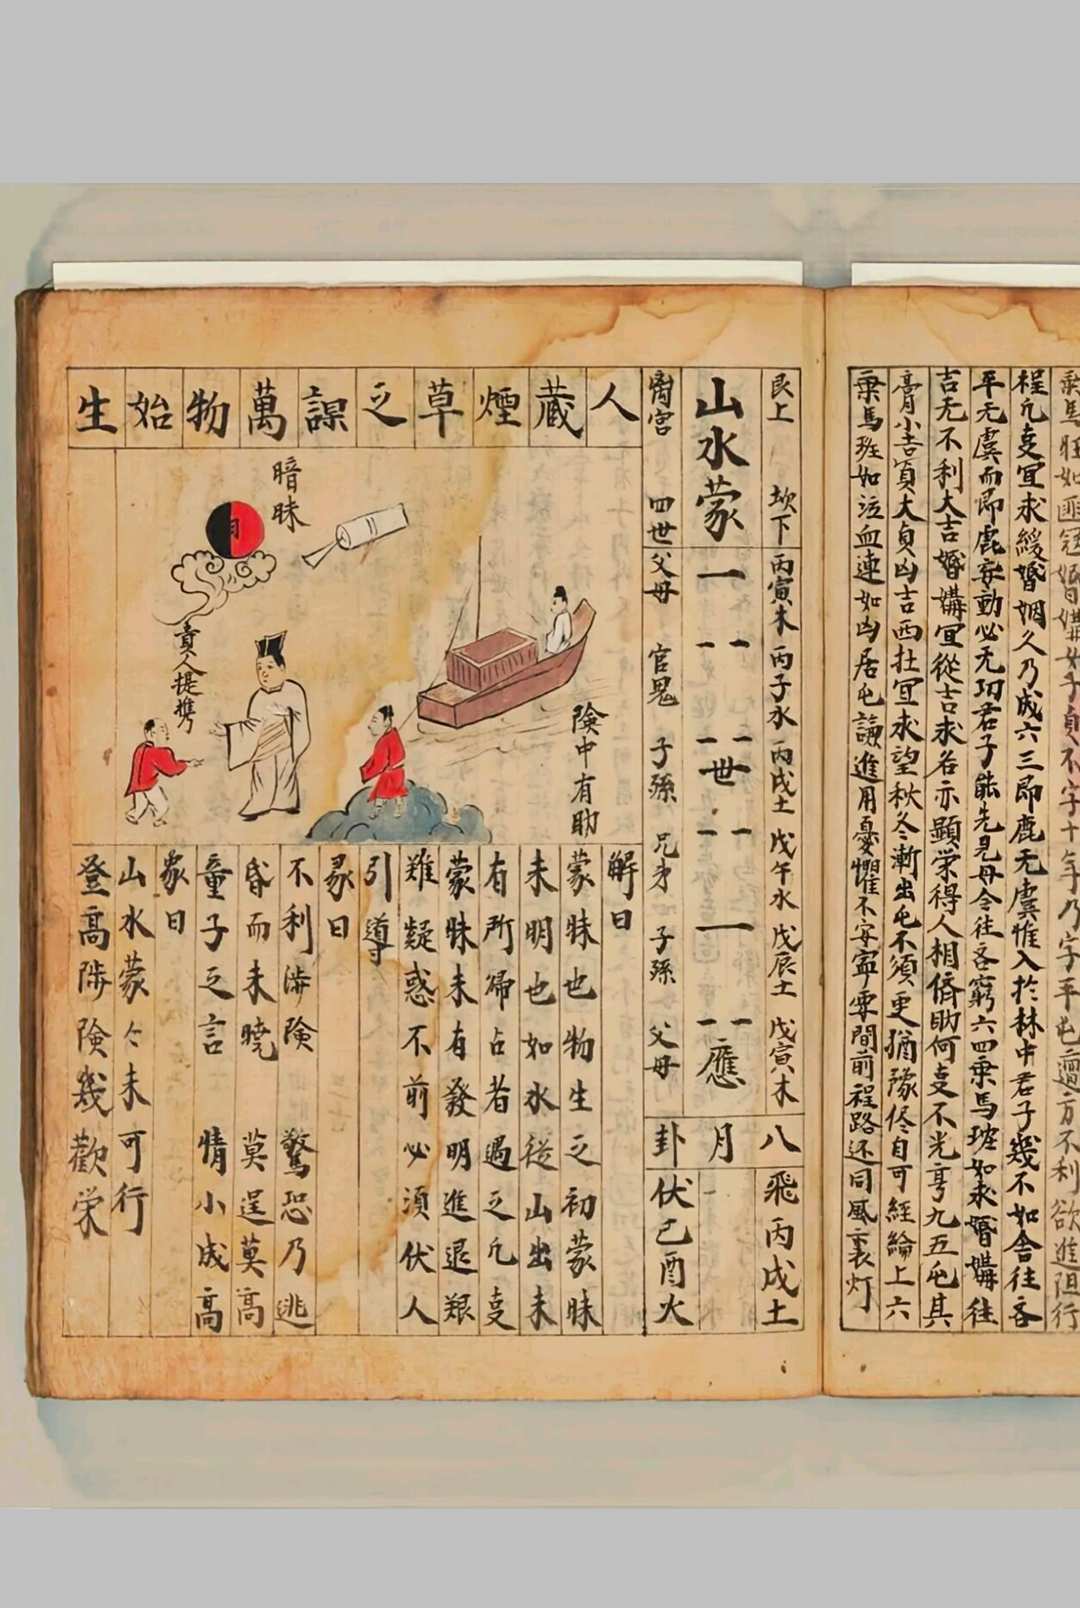 程凡叓宜求綬婚姻久乃成六三即鹿无虞惟入於林中君子幾不如舍往吝
平无虞而即鹿妄動必无功君子能先見毋令往吝窮六四乗馬班如求婚媾往
吉无不利大吉婚媾宜從吉求名亦顯栄得人相偹助何叓不光亨九五屯其
膏小吉貞大貞凶吉西社宜求望秋冬漸出屯不須更猶豫侭自可經綸上六
乗馬班如泣血連如凶居屯謙進用憂懼不安寧要間前程路还同風裏灯
艮上 坎下 丙寅木 丙子水 丙戌土 戊午水 戊辰土 戊寅木
山水蒙
世
應
离宮 四世 父母 官鬼 子孫 兄弟 子孫 父母
八月卦
飛丙戌土
伏己酉火
人藏煙草之謀萬物始生
暗昧
月
貴人提携
険中有助
觧曰
蒙昧也物生之初蒙昧
未明也如水從山出未
有所帰占者遇之凡叓
蒙昧未有發明進退艱
難疑惑不前必須伏人
引導
彖曰
不利涉険 驚恐乃逃
昏而未曉 莫逞莫高
童子之言 情小成高
象曰
山水蒙々未可行
登高陟険幾歡栄